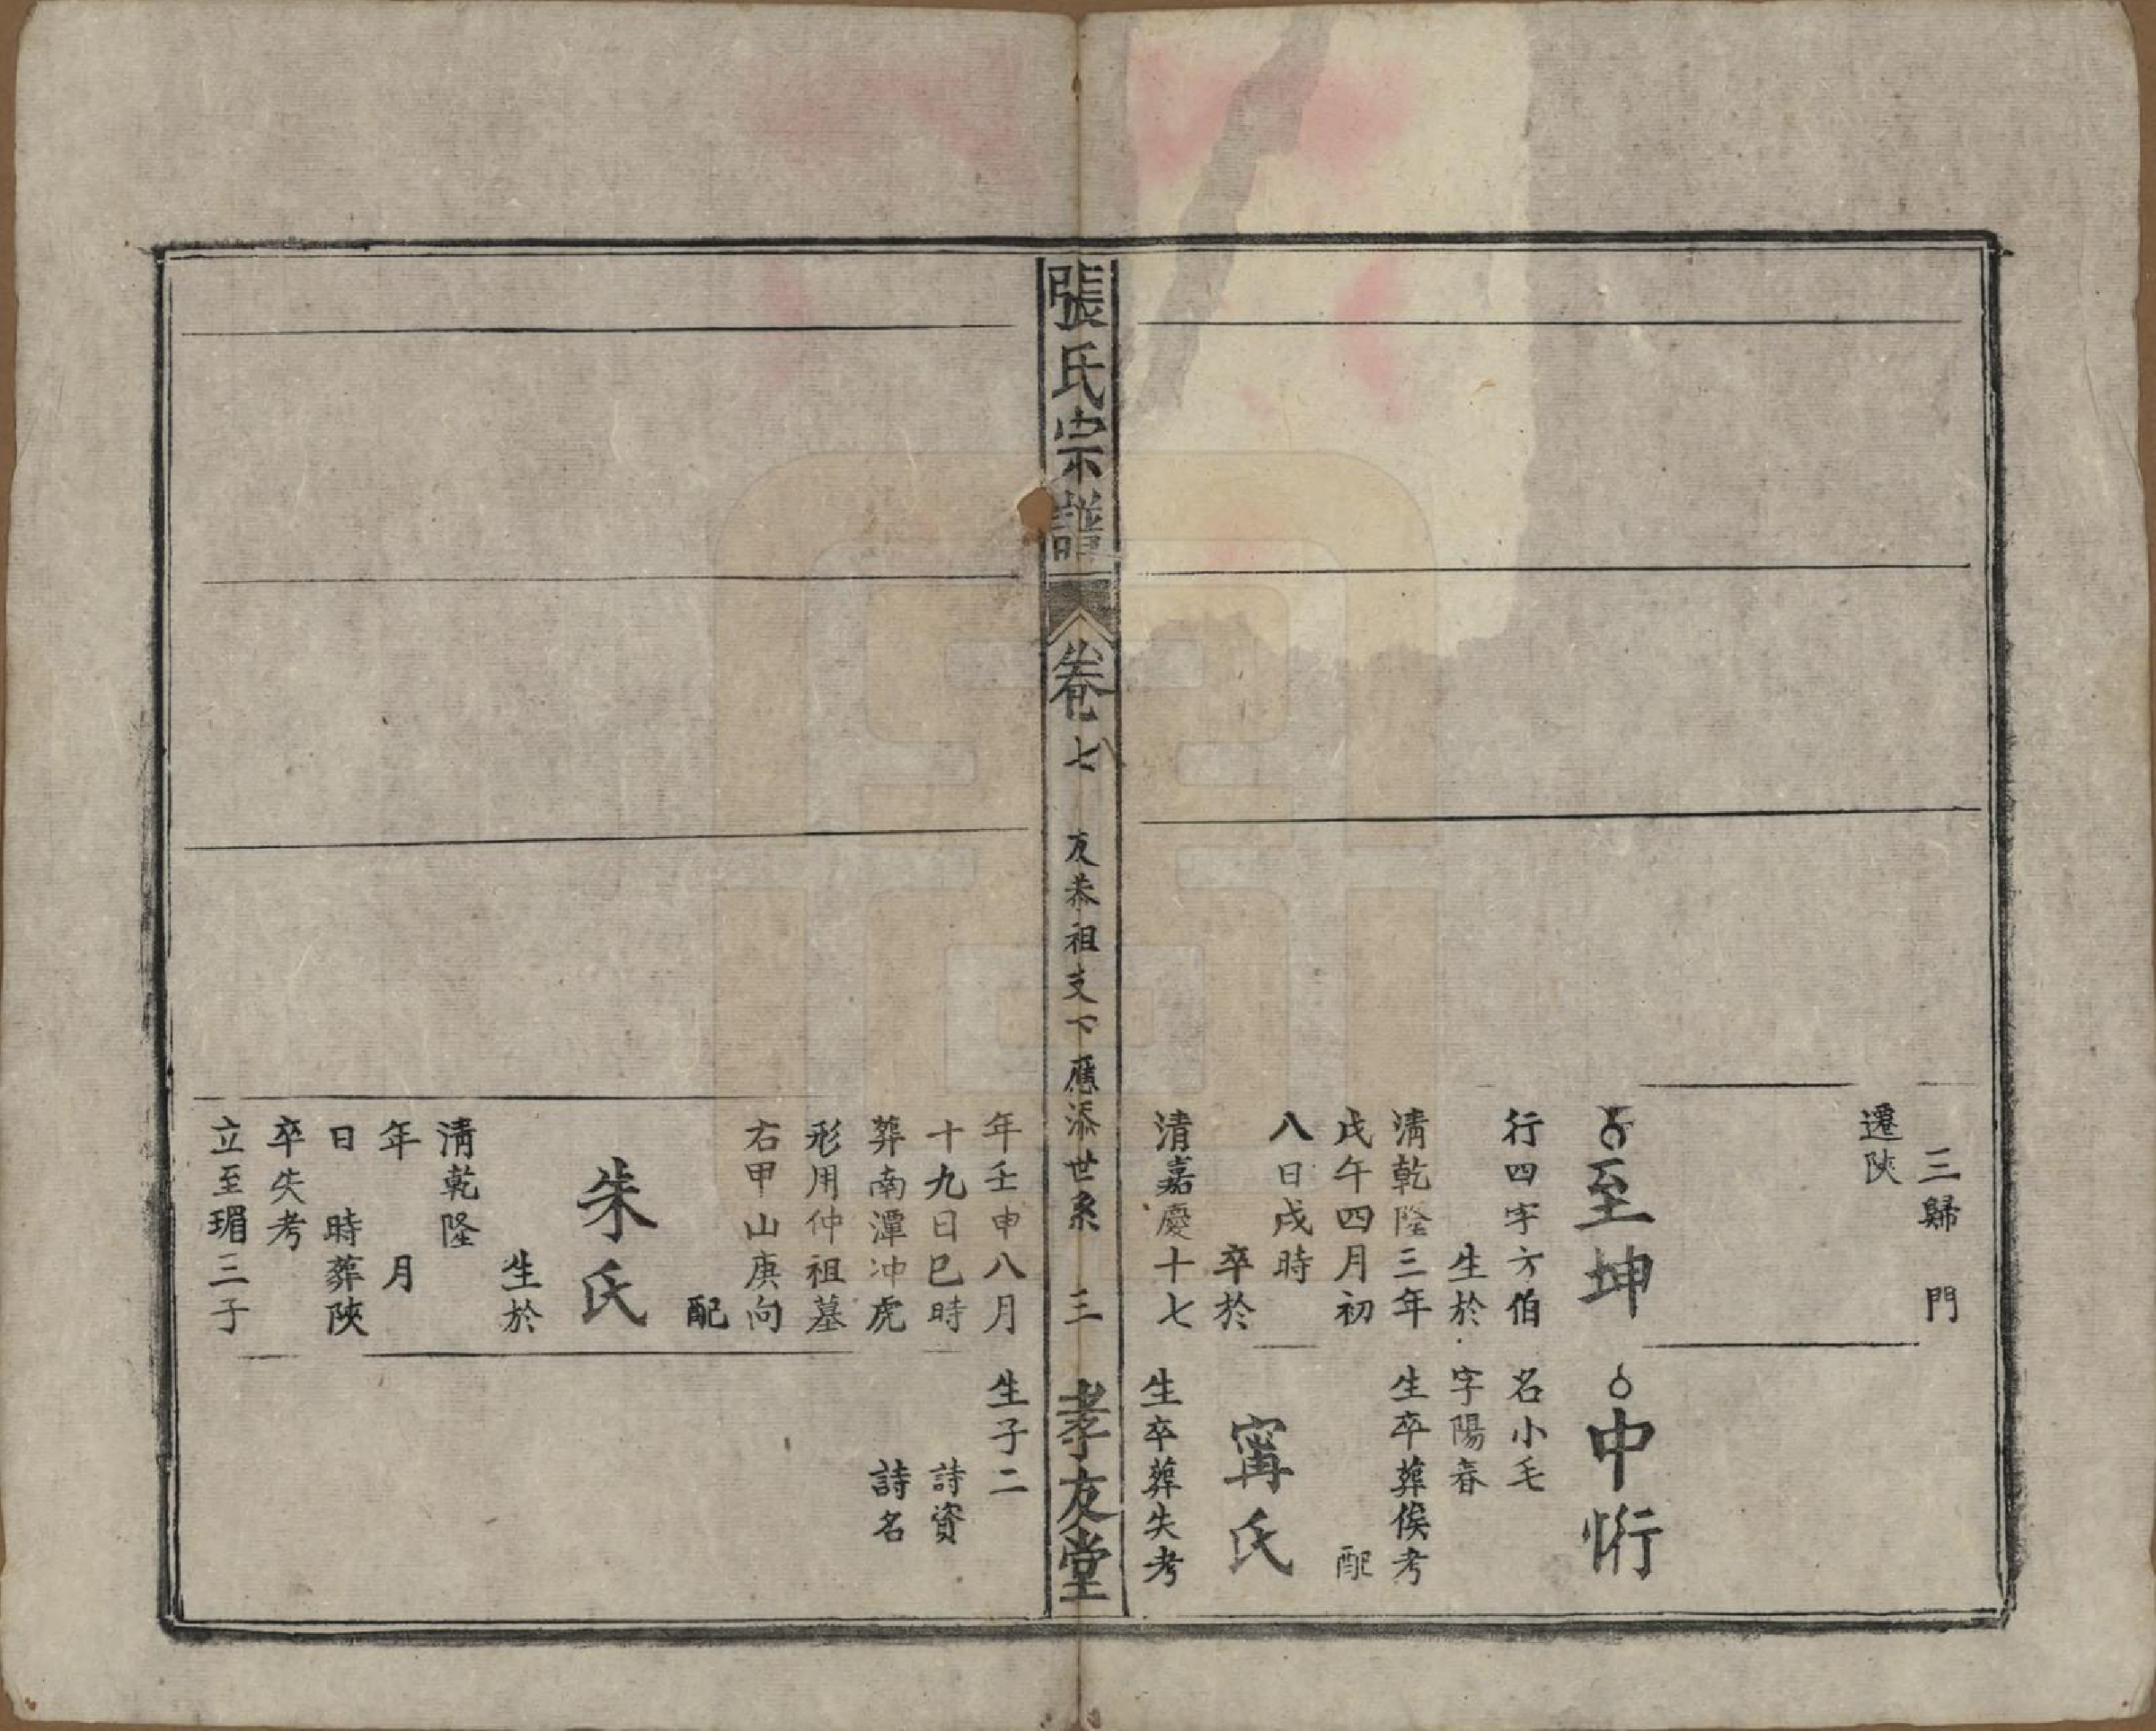 三歸門
遷陝
至坤
行四字方伯
生於
淸乾隆三年
戊午四月初
八日戌時
卒於
清嘉慶十七
中裄
名小毛
字陽春
生卒葬俟考
配
甯氏
生卒葬失考
張氏宗譜
卷七
友恭祖支下應添世系
三
孝友堂
年壬申八月
十九日巳時
葬南潭冲虎
形用仲祖墓
右甲山庚向
配
朱氏
生於
淸乾隆
年 月
日 時葬陝
卒失考
立至瑂三子
生子二
詩資
詩名